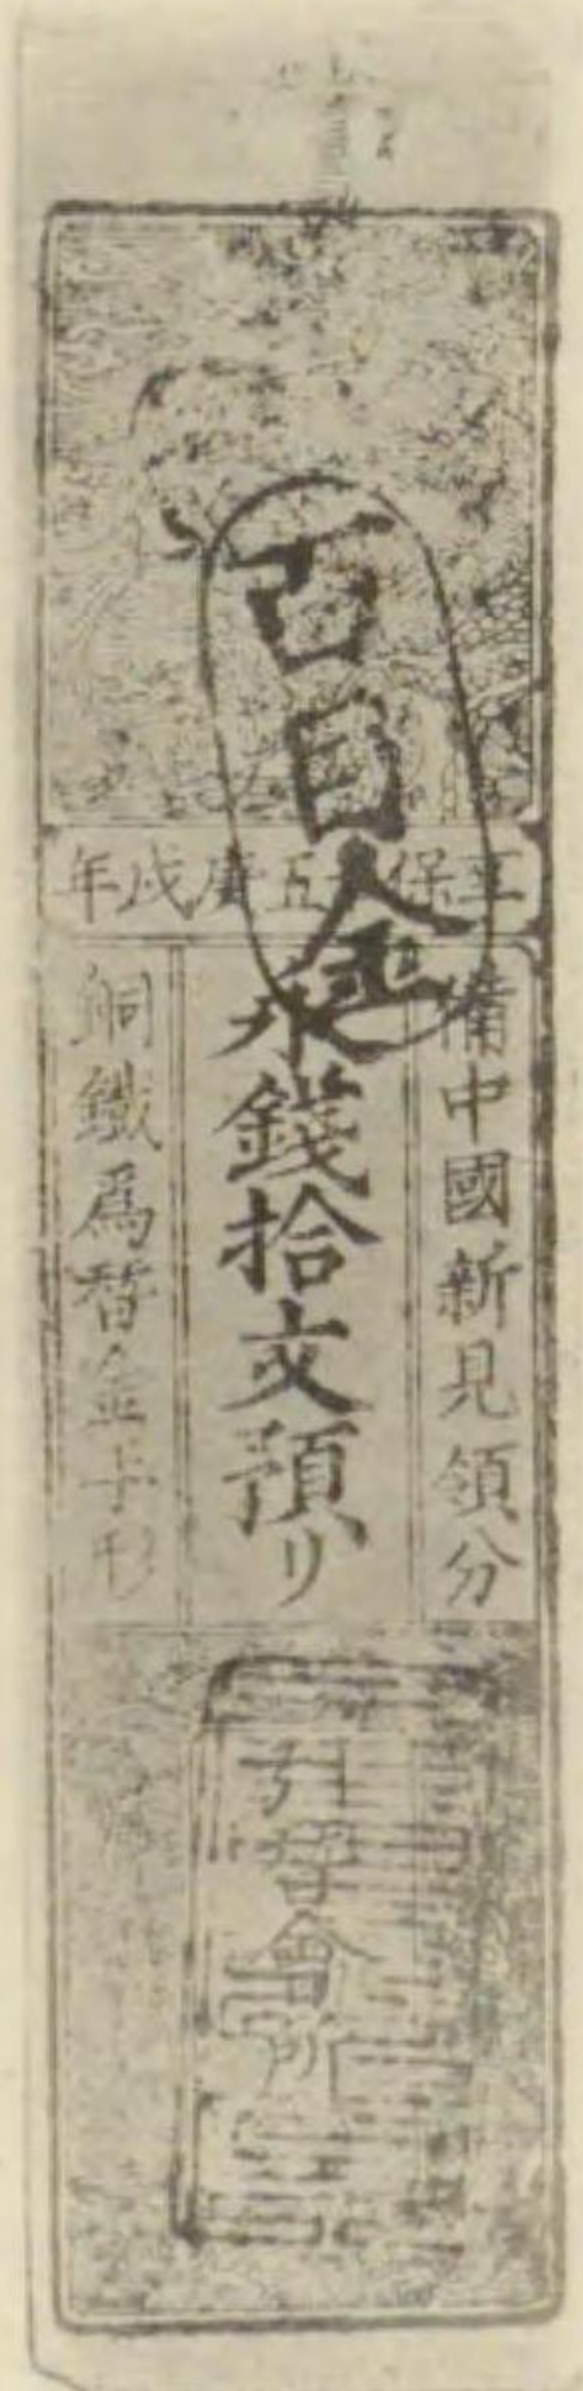 百目金
享保十五庚戌年
備中國新見領分
永錢拾文預リ
銅鐵為替金手形
引替會所